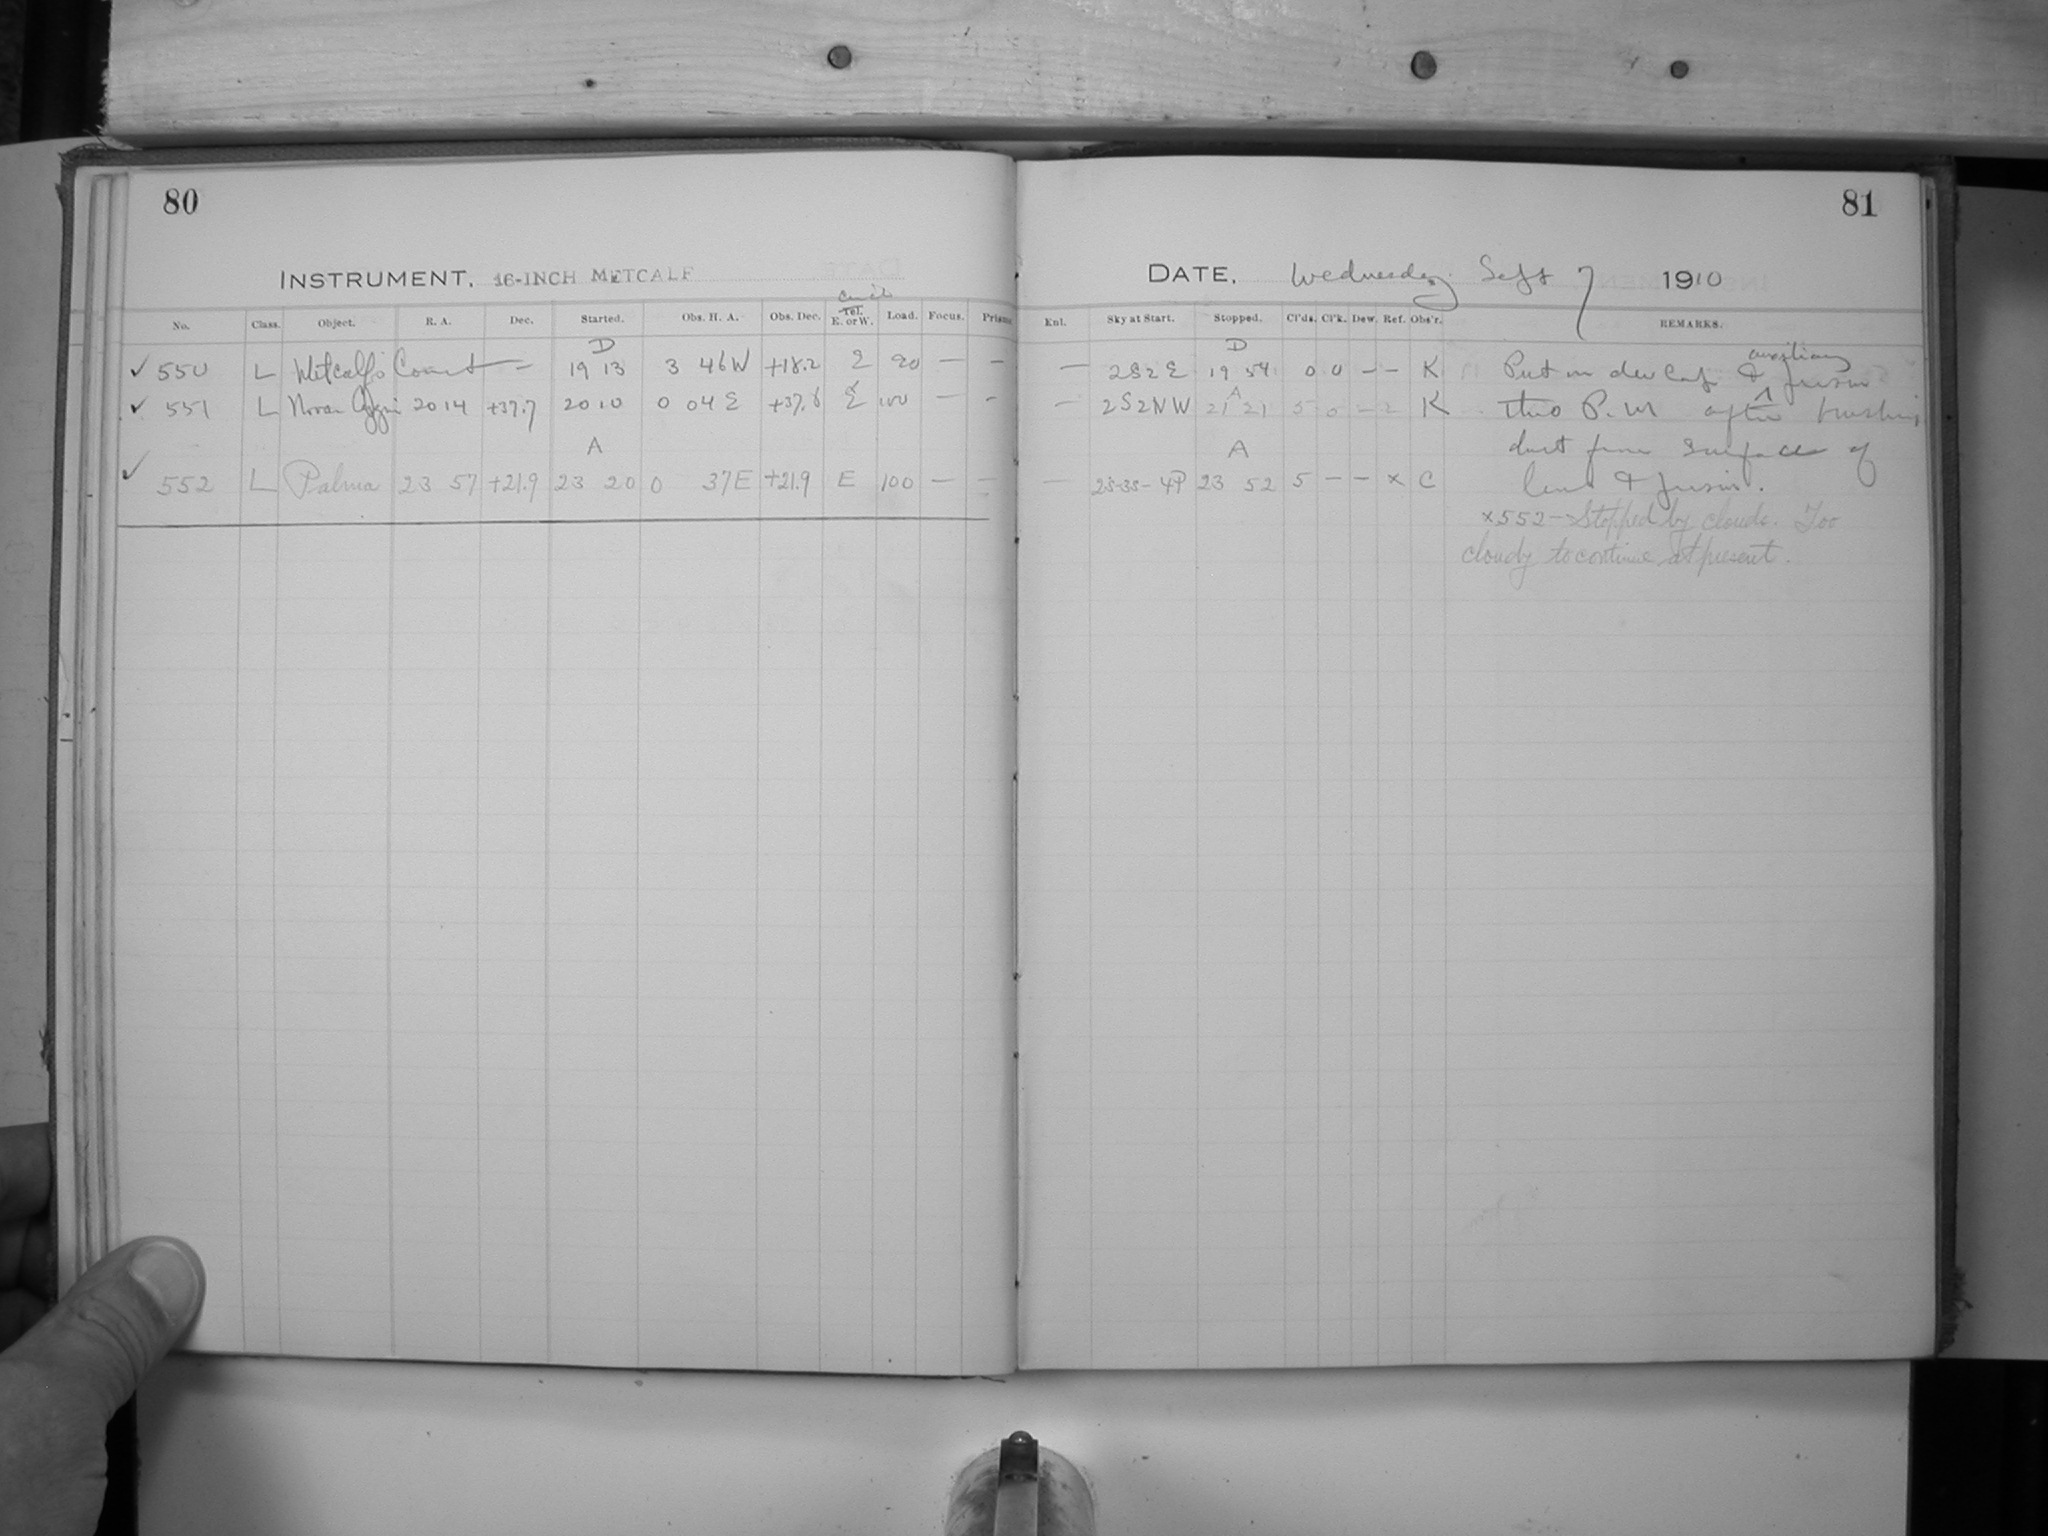 80
81
INSTRUMENT, 16-INCH METCALF
DATE, Wednesday Sept 7 1910
No. Class. Object. R. A. Dec. Started. Obs. H. A. Obs. Dec. Tel. E. or W. Load. Focus. Prism
Enl. Sky at Start. Stopped. Cl'ds. Cl'k. Dew. Ref. Obs'r. REMARKS.
D
D
auxiliary
✓ 550 L Metcalf's Comet — 19 13 3 46 W +18.2 E 90 — —
— 2S2E 19 54 0 0 — — K Put on dew cap & ^ prism
✓ 551 L Novae Cygni 20 14 +37.7 20 10 0 04 E +37.6 E 100 — -
A
— 2S2NW 21 21 5 0 — 2 K this P.M after brushing
dust from surface of
A
A
✓ 552 L Palma 23 57 +21.9 23 20 0 37 E +21.9 E 100 — —
— 2S-3S-4P 23 52 5 — — x C lens & prism.
x552--Stopped by clouds. Too
cloudy to continue at present.